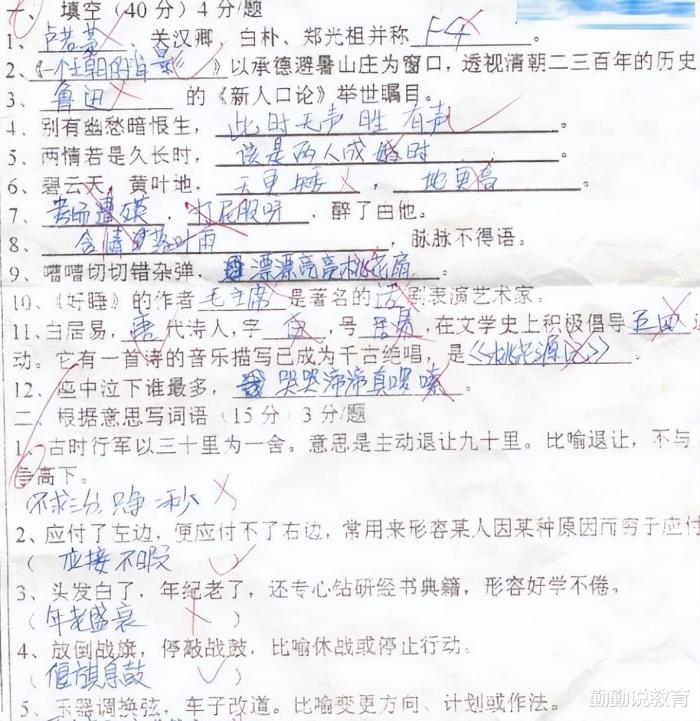 一、填空（40分）4分/题
1、卢若蓝，关汉卿、白朴、郑光祖并称 F4 。
2、《一个王朝的背影》以承德避暑山庄为窗口，透视清朝二三百年的历史
3、鲁迅 的《新人口论》举世瞩目。
4、别有幽愁暗恨生，此时无声胜有声 。
5、两情若是久长时，该是两人成婚时 。
6、碧云天，黄叶地，天更矮，地更高 。
7、考场遭殃，打屁股呀，醉了由他。
8、含情 ，脉脉不得语。
9、嘈嘈切切错杂弹，漂漂亮亮桃花扇 。
10、《好睡》的作者毛主席 是著名的话剧表演艺术家。
11、白居易，唐代诗人，字 白 ，号 居易 ，在文学史上积极倡导 五四 运
动。它有一首诗的音乐描写已成为千古绝唱，是《桃花源记》 。
12、座中泣下谁最多，哭哭涕涕真啰嗦 。
二、根据意思写词语（15分）3分/题
1、古时行军以三十里为一舍。意思是主动退让九十里。比喻退让，不与
争高下。
（不求三分，只争一秒
2、应付了左边，便应付不了右边，常用来形容某人因某种原因而穷于应付
（ 应接不暇 ）
3、头发白了，年纪老了，还专心钻研经书典籍，形容好学不倦。
（ 年老盛衰 ）
4、放倒战旗，停敲战鼓，比喻休战或停止行动。
（ 偃旗息鼓 ）
5、乐器调换弦，车子改道。比喻变更方向、计划或作法。
勤勤说教育